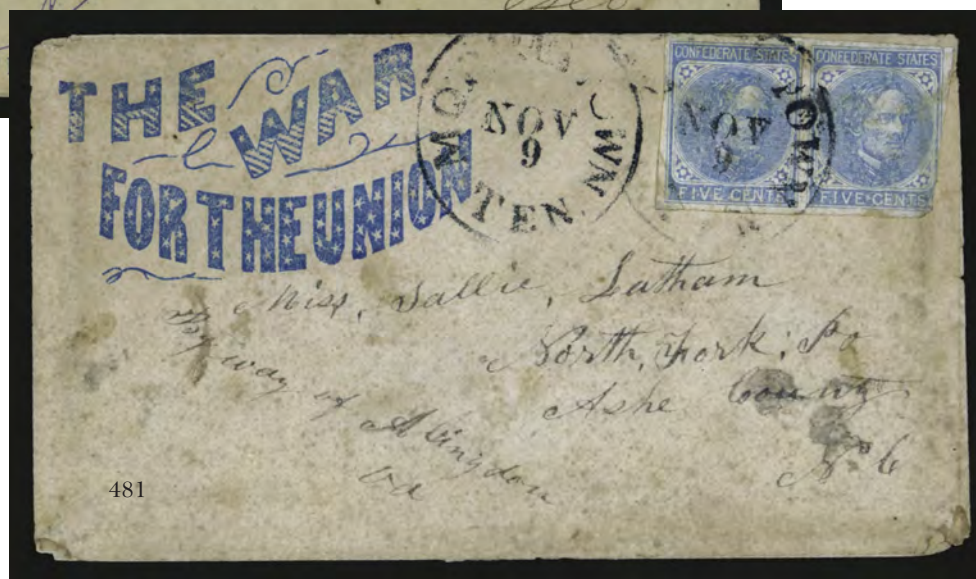 THE WAR
FOR THE UNION
TOWN
NOV
9
TEN.
CONFEDERATE STATES
FIVE CENTS
CONFEDERATE STATES
FIVE CENTS
NOV
9
TOWN
Miss, Sallie, Latham
North, Fork; Po
Ashe County
N C
By way of Abingdon
Va
481